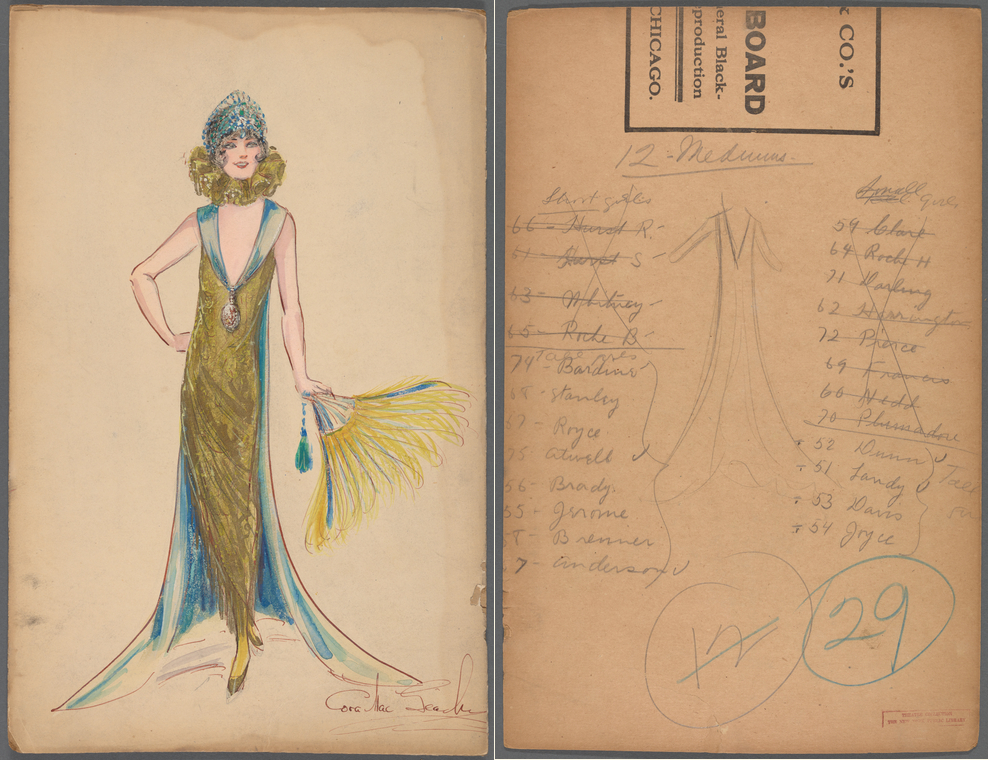 Cora Mac Geachy
& CO.'S
BOARD
eral Black-
production
CHICAGO.
12 - Mediums -
Short girls
66 - Hurst R.
61 - Hurst S
63 - Whitney
65 - Roche B
74 - Bardine
68 - Stanley
57 - Royce
75 - Atwell
56 - Brady
55 - Jerome
58 - Brenner
7 - Anderson
Small girls
59 Clark
64 Roche H
71 Darling
62 Harrington
72 Pierce
69 Francis
60 Hedd
70
52 Dunn
51 Landy
53 Davis
54 Joyce
Tall
29
THEATRE COLLECTION
THE NEW YORK PUBLIC LIBRARY